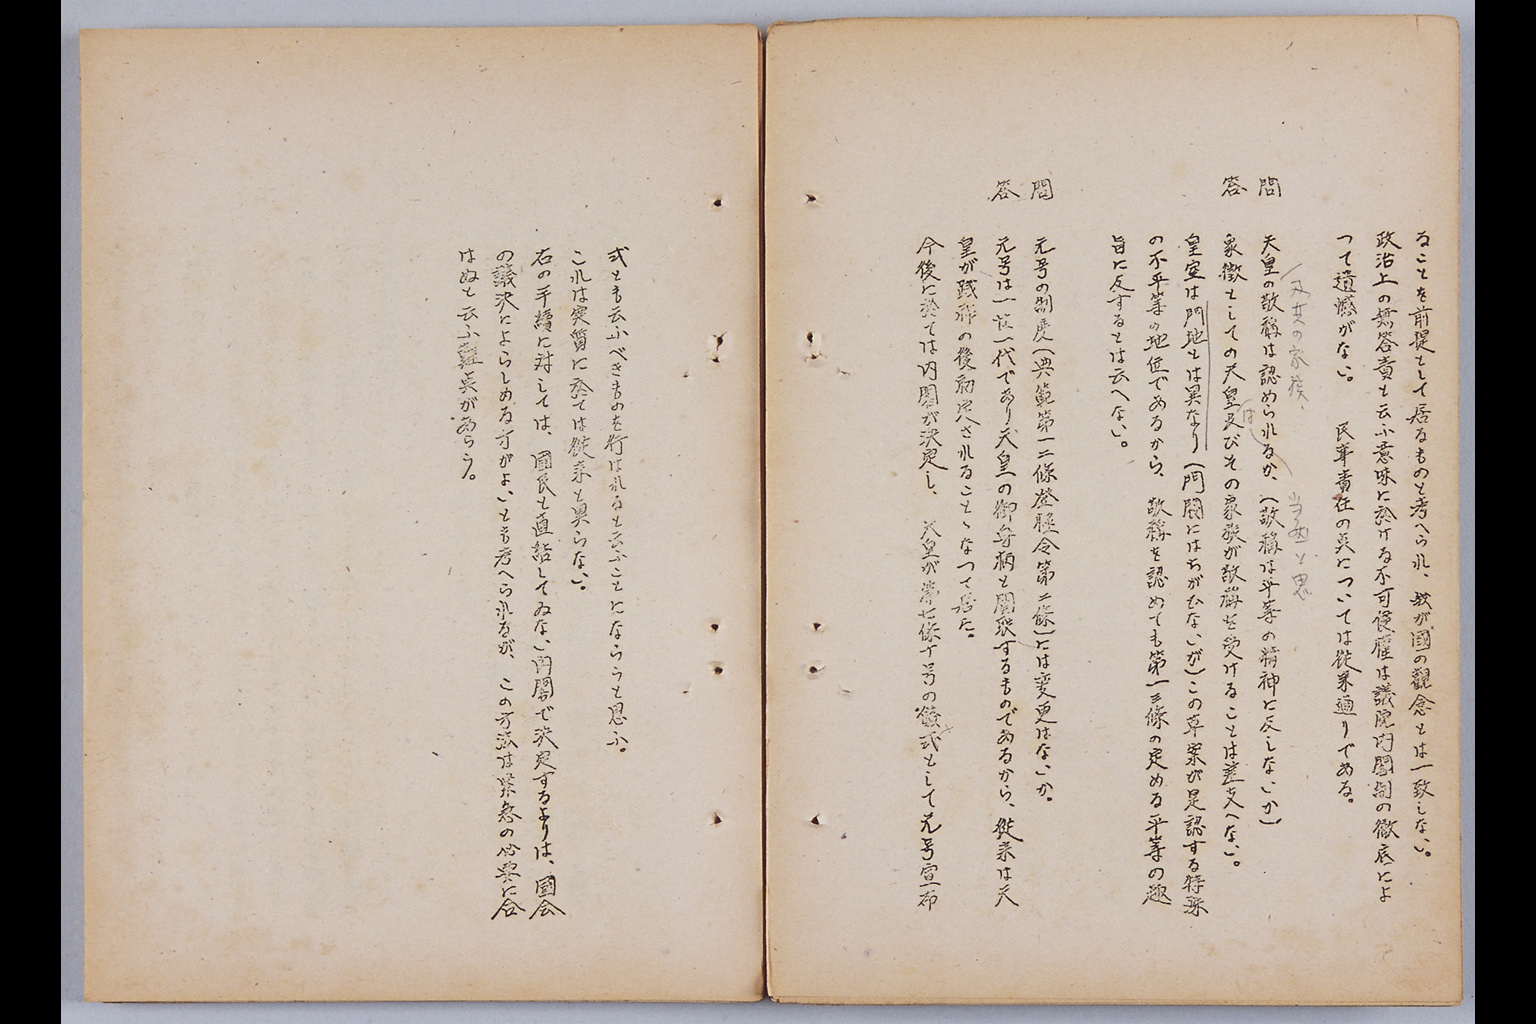 ることを前提として居るものと考へられ、我が國の觀念とは一致しない。
政治上の無答責と云ふ意味に於ける不可侵權は議院内閣制の徹底によ
つて遺憾がない。　民事責任の点については從来通りである。
及其の家族、　当然と思
問　天皇の敬稱は認められるか、（敬稱は平等の精神に反しないか）
は
答　象徴としての天皇及びその家族が敬稱を受けることは差支へない。
皇室は門地とは異なり（門閥にはちがひないが）この草案が是認する特殊
の不平等の地位であるから、敬稱を認めても第一三條の定める平等の趣
旨に反するとは云へない。
問　元号の制度（典範第一二條登極令第二條）には変更はないか。
答　元号は一世一代であり天皇の御身柄と関聯するものであるから、從来は天
皇が践祚の後勅定へされることゝなつて居た。
今後に於ては内閣が決定し、天皇が第七條十号の儀式として元号宣布
式とも云ふべきものを行はれると云ふことにならうと思ふ。
これは実質に於ては從来と異らない。
右の手續に対しては、國民と直結してゐない内閣で決定するよりは、國会
の議決によらしめる方がよいとも考へられるが、この方法は緊急の必要に合
はぬと云ふ難点があらう。